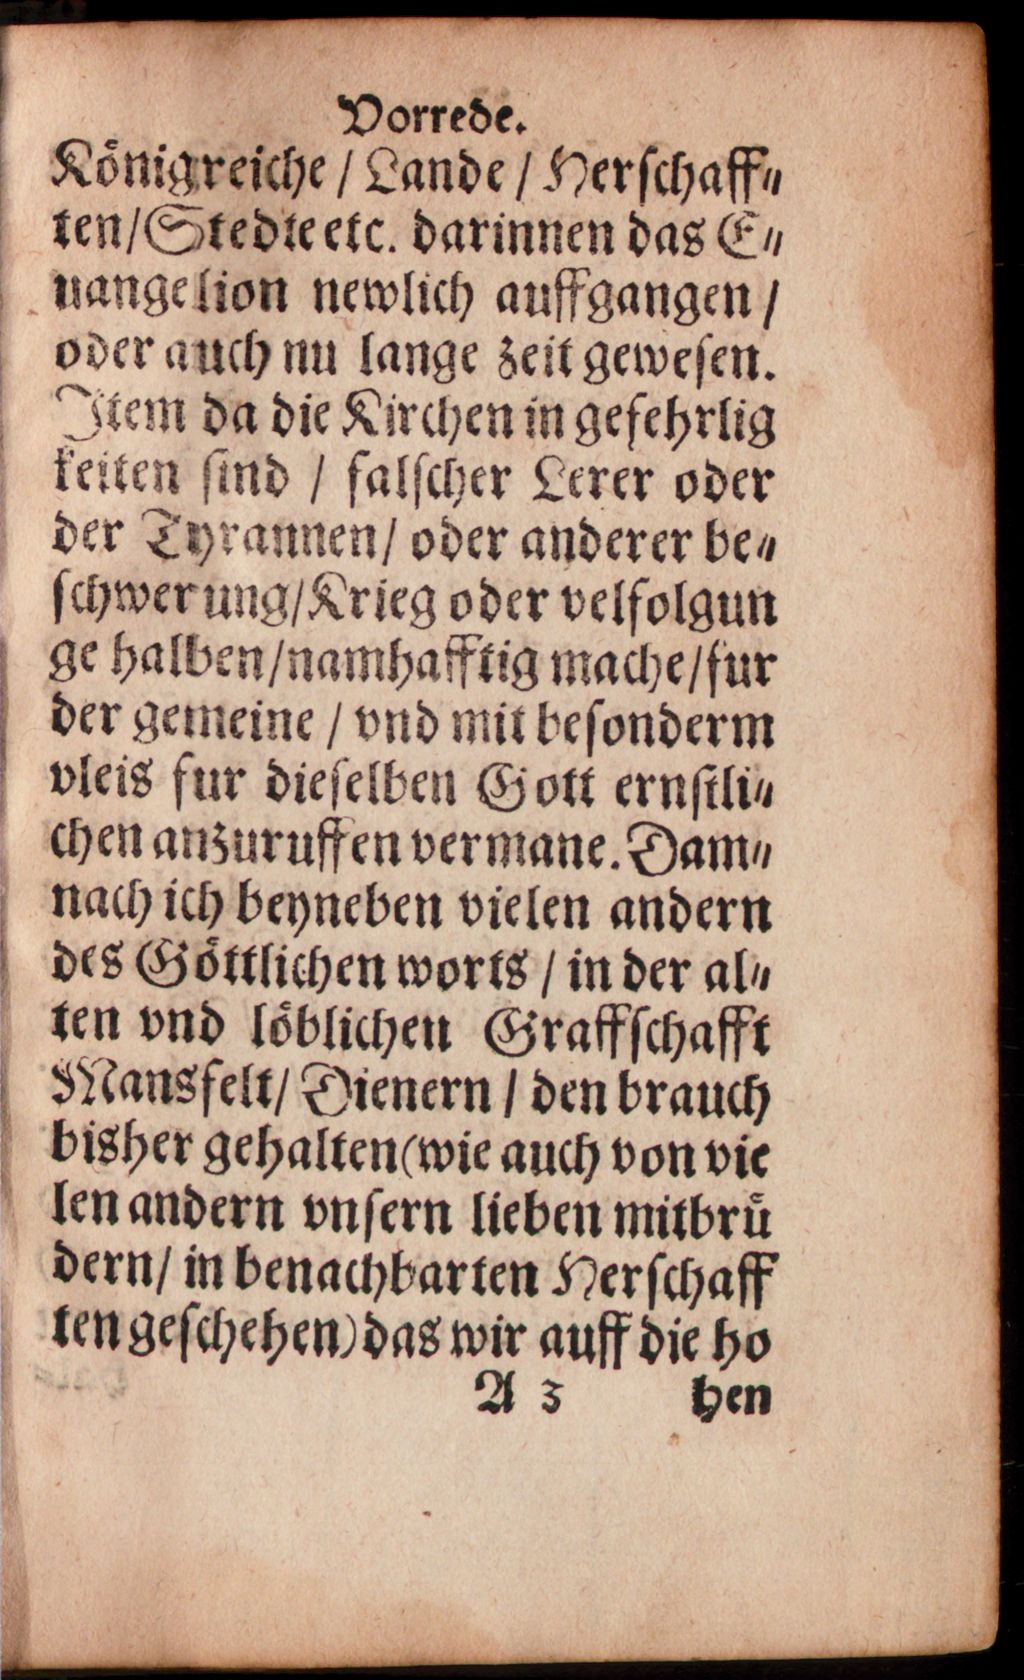 Vorrede.
Königreiche / Lande / Herschaff⸗
ten/Stedte etc. darinnen das E⸗
uangelion newlich auffgangen /
oder auch nu lange zeit gewesen.
Item da die Kirchen in gefehrlig
keiten sind / falscher Lerer oder
der Tyrannen/ oder anderer be⸗
schwerung/Krieg oder velfolgun
ge halben/namhafftig mache/fur
der gemeine / vnd mit besonderm
vleis fur dieselben Gott ernstli⸗
chen anzuruffen vermane. Dam⸗
nach ich beyneben vielen andern
des Göttlichen worts / in der al⸗
ten vnd löblichen Graffschafft
Mansfelt/ Dienern / den brauch
bisher gehalten(wie auch von vie
len andern vnsern lieben mitbrü
dern/ in benachbarten Herschaff
ten geschehen)das wir auff die ho
A 3 hen